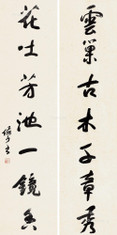 雲巢古木千章秀
花吐芳池一鏡